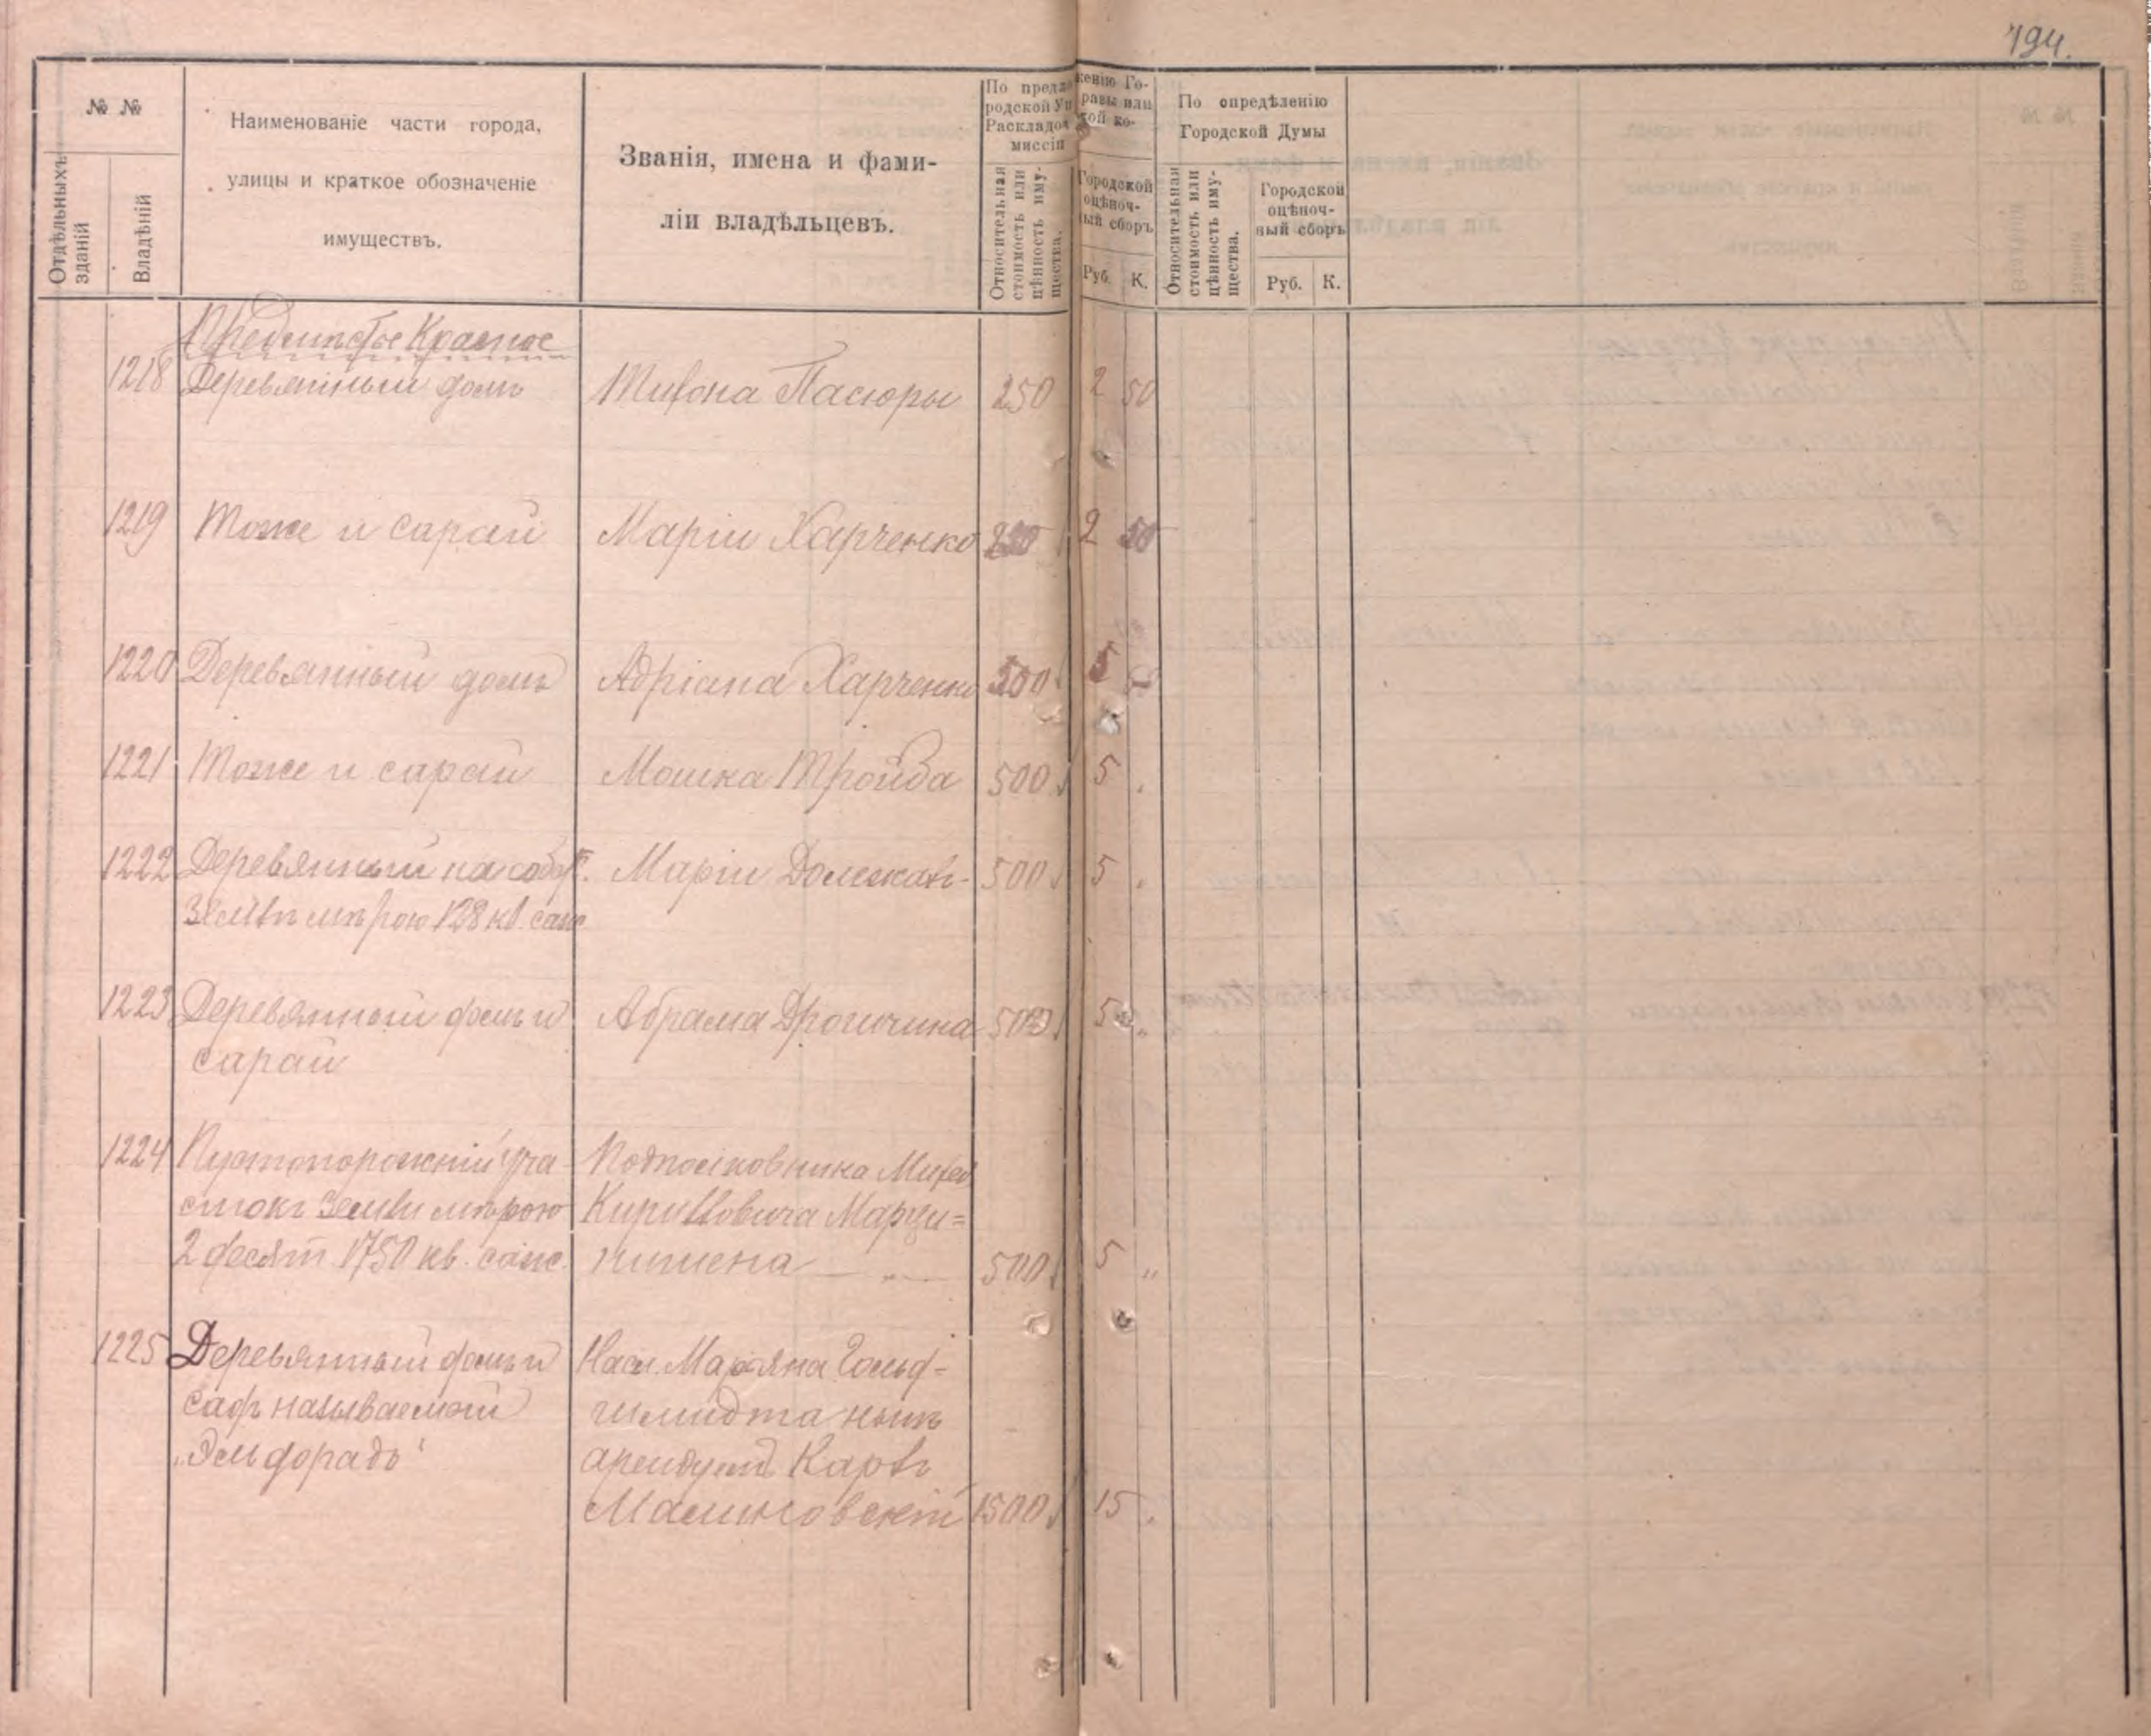 194.
№ №
Отдѣльныхъ зданій
Владѣній
Наименованіе части города,
улицы и краткое обозначеніе
имуществъ.
Званія, имена и фами-
ліи владѣльцевъ.
По предложенію Го-
родской Управы или
Раскладочной ко-
миссіи
Относительная стоимость или цѣнность иму-щества.
Городской
оцѣноч-
ный сборъ
Руб. К.
По опредѣленію
Городской Думы
Относительная стоимость или цѣнность иму-щества.
Городской
оцѣноч-
ный сборъ
Руб. К.
Предмѣстье Красное
1218 Деревянный домъ Тихона Пасюры 250 2 50
1219 Тоже и сарай Маріи Харченко 250 2 50
1220 Деревянный домъ Адріана Харченко 500 5
1221 Тоже и сарай Мошка 500 5 „
1222 Деревянный на собст. Маріи 500 5 „
землѣ мѣрою 128 кв. саж
1223 Деревянный домъ и Абрама Дрогичина 500 5 „
сарай
1224 Пустопорожній уча- Подполковника
стокъ земли мѣрою Кирилловича
2 десят. 1750 кв. саж. 500 5 „
1225 Деревянный домъ и Насл. Марьяна Гольд-
садъ называемый шмидта нынѣ
„Эльдорадо“ арендуетъ Карлъ
Малиновскій 1500 15 „